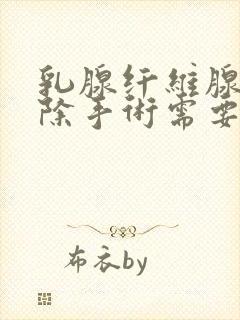 乳腺纤维腺
除手術需要
布衣by